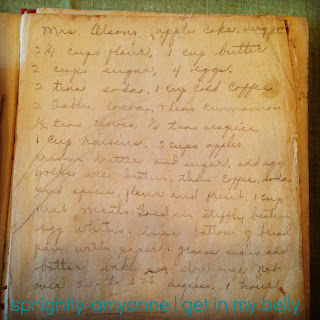 Mrs. Olsons apple cake. Very good
2 3/4 cups flour, 1 cup butter
2 cups sugar, 4 eggs.
2 teas soda, 1 cup cold coffee
2 tables. cocoa, 1 teas cinnamon
1/2 teas cloves, 1/4 teas allspice
1 cup raisins, 2 cups apples
cream butter and sugar, add egg
yolks well beaten, then coffee, soda
and spices, flour and fruit. 1 cup
nut meats fold in stiffly beaten
egg whites. line bottom of bread
pan with paper. grease sides add
batter bake slow not
over degrees, 1 hour
sprightly-amyanne | get in my belly